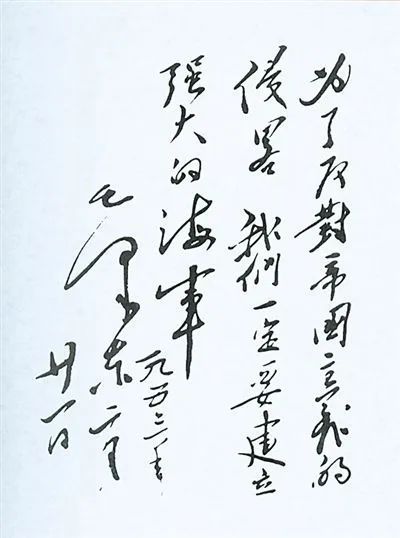 为了反對帝國主義的
侵畧 我們一定要建立
强大的海軍
一九五三年
毛澤东二月
廿一日